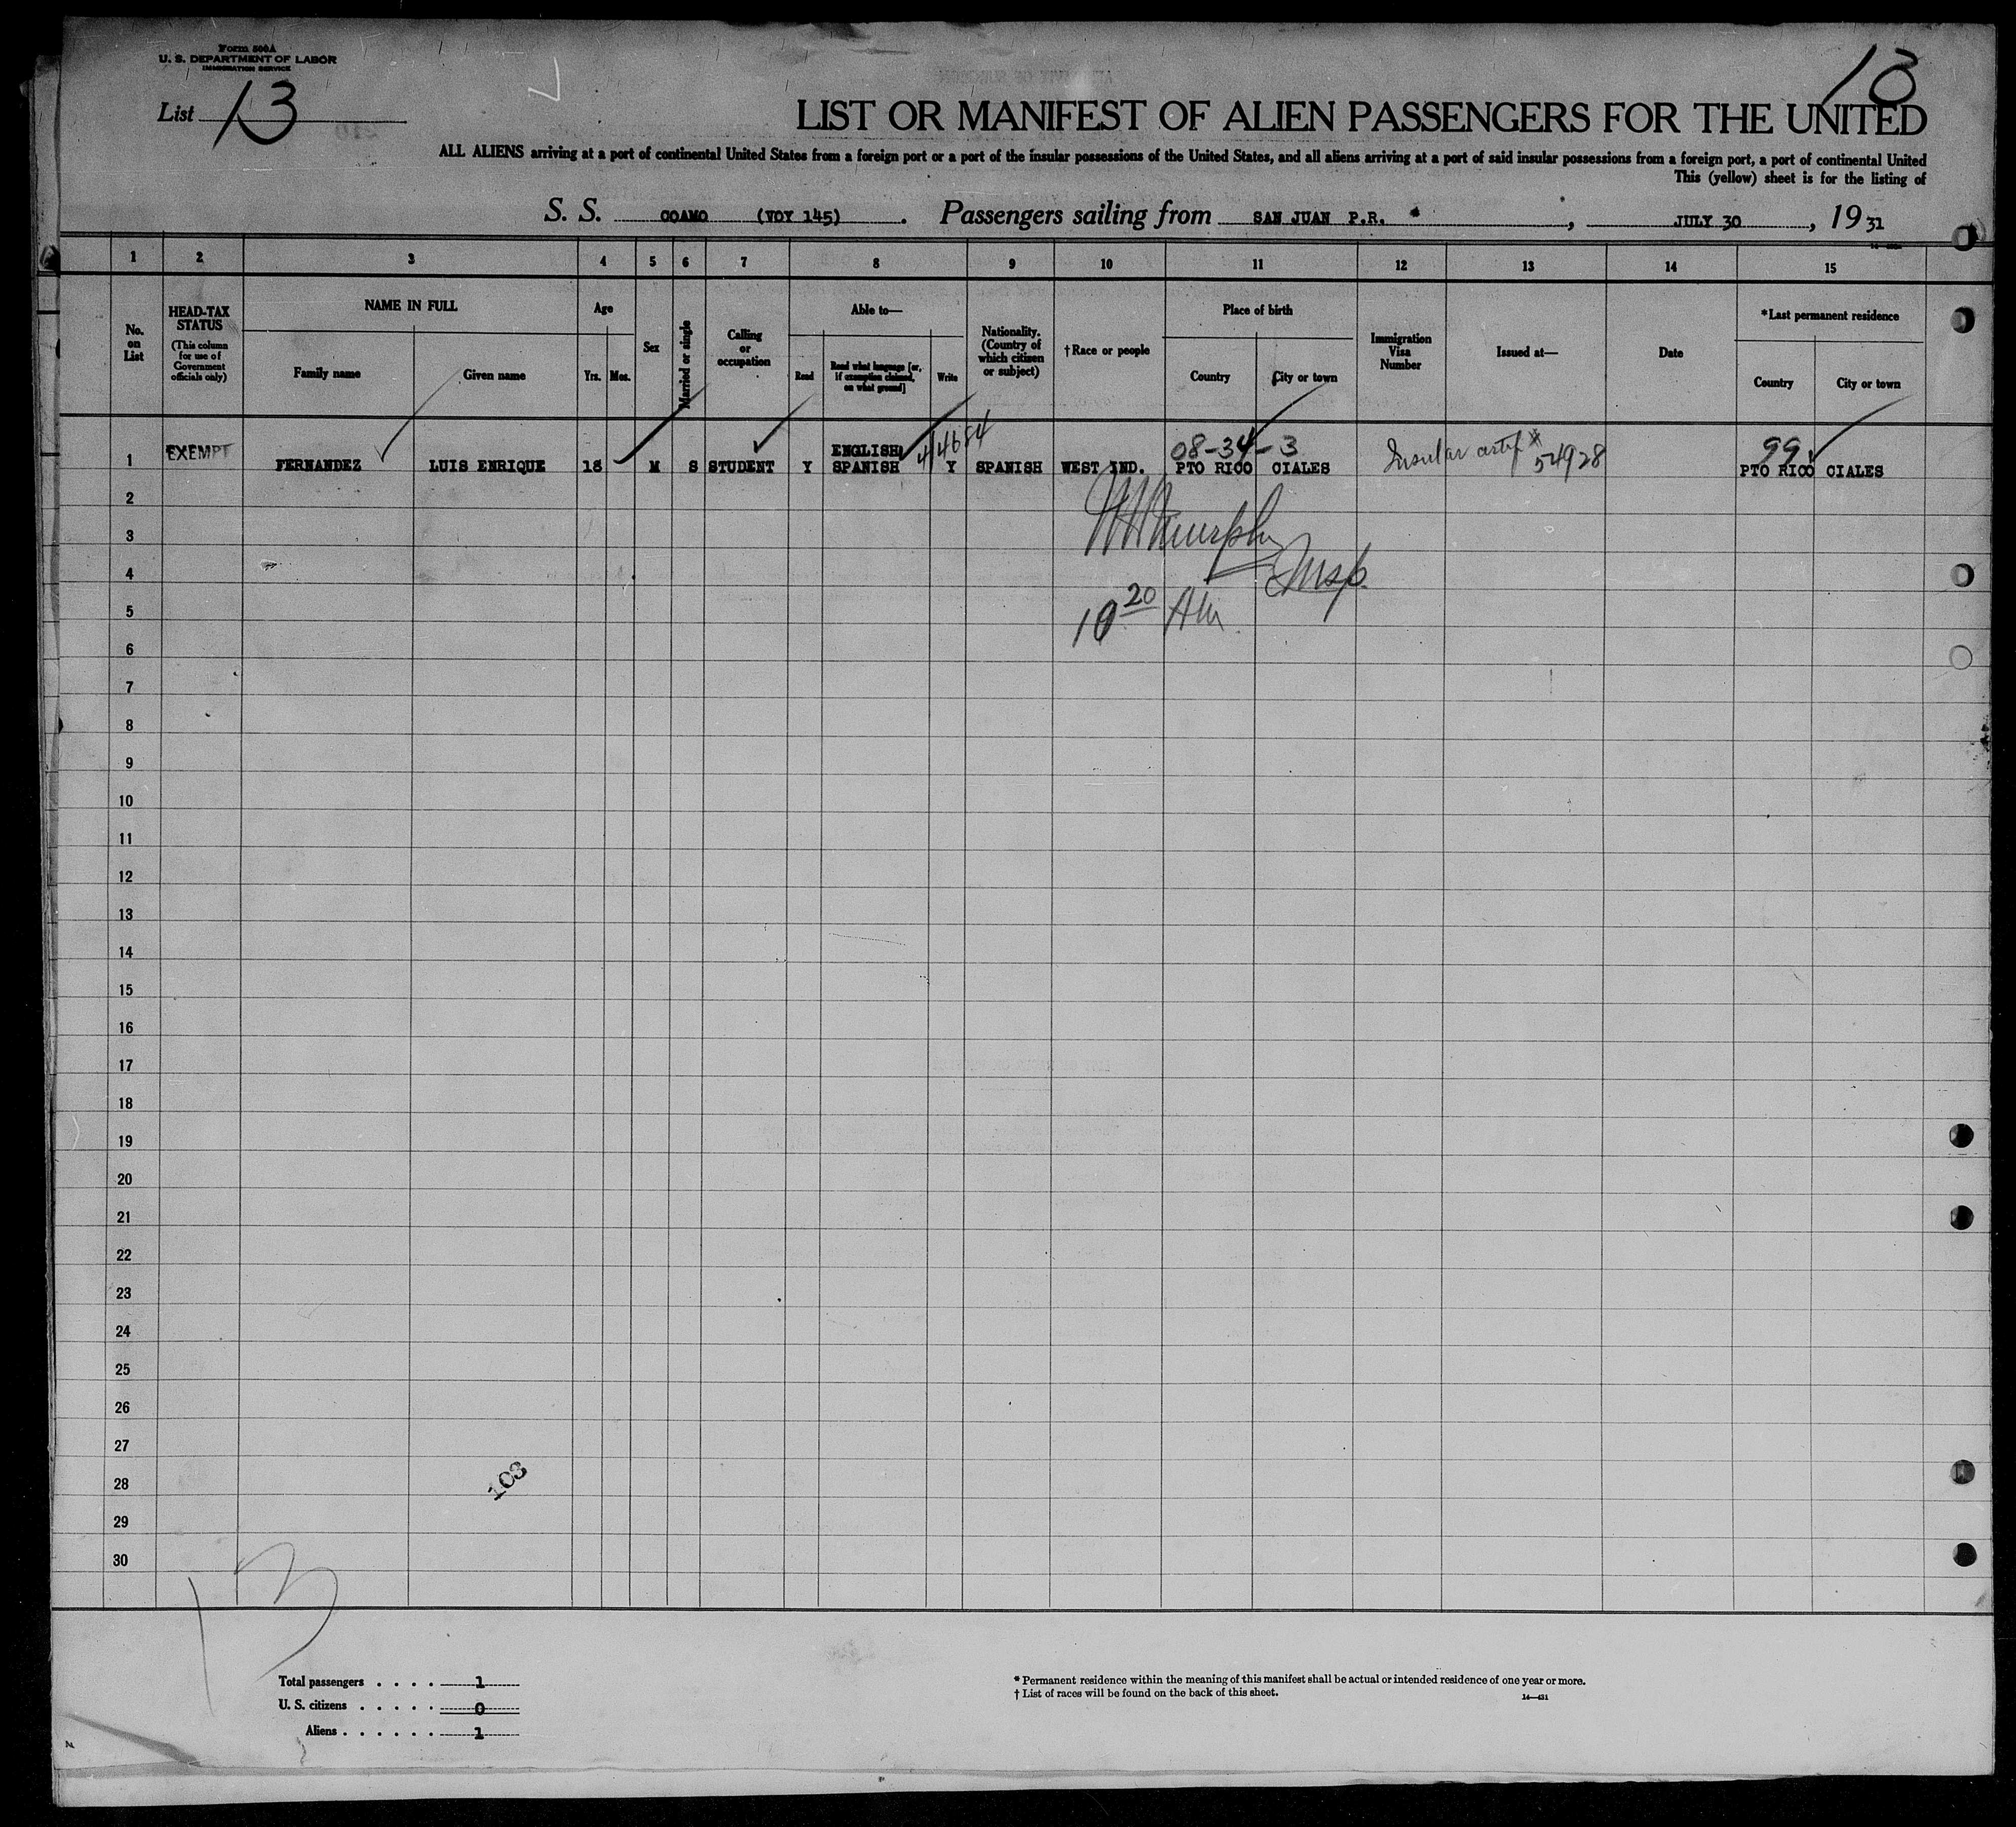 Form 500A
U. S. DEPARTMENT OF LABOR
IMMIGRATION SERVICE
List 13
13
LIST OR MANIFEST OF ALIEN PASSENGERS FOR THE UNITED
ALL ALIENS arriving at a port of continental United States from a foreign port or a port of the insular possessions of the United States, and all aliens arriving at a port of said insular possessions from a foreign port, a port of continental United
This (yellow) sheet is for the listing of
S. S. COAMO (VOY 145). Passengers sailing from SAN JUAN P.R. , JULY 30 , 19 31
1 2 3 4 5 6 7 8 9 10 11 12 13 14 15
No. on List
HEAD-TAX STATUS
(This column for use of Government officials only)
NAME IN FULL
Family name
Given name
Age
Yrs.
Mos.
Sex
Married or single
Calling or occupation
Able to—
Read
Read what language [or, if exemption claimed, on what ground]
Write
Nationality. (Country of which citizen or subject)
†Race or people
Place of birth
Country
City or town
Immigration Visa Number
Issued at—
Date
*Last permanent residence
Country
City or town
08-34-3
99
1 EXEMPT FERNANDEZ LUIS ENRIQUE 18 M S STUDENT Y ENGLISH SPANISH Y SPANISH WEST IND. PTO RICO CIALES Insular 54928 PTO RICO CIALES
2
3
Murphy
4
Insp.
5
10 20 AM
6
7
8
9
10
11
12
13
14
15
16
17
18
19
20
21
22
23
24
25
26
27
28
103
29
30
13
Total passengers . . . . 1
U. S. citizens . . . . . 0
Aliens . . . . . . 1
* Permanent residence within the meaning of this manifest shall be actual or intended residence of one year or more.
† List of races will be found on the back of this sheet.
14—431